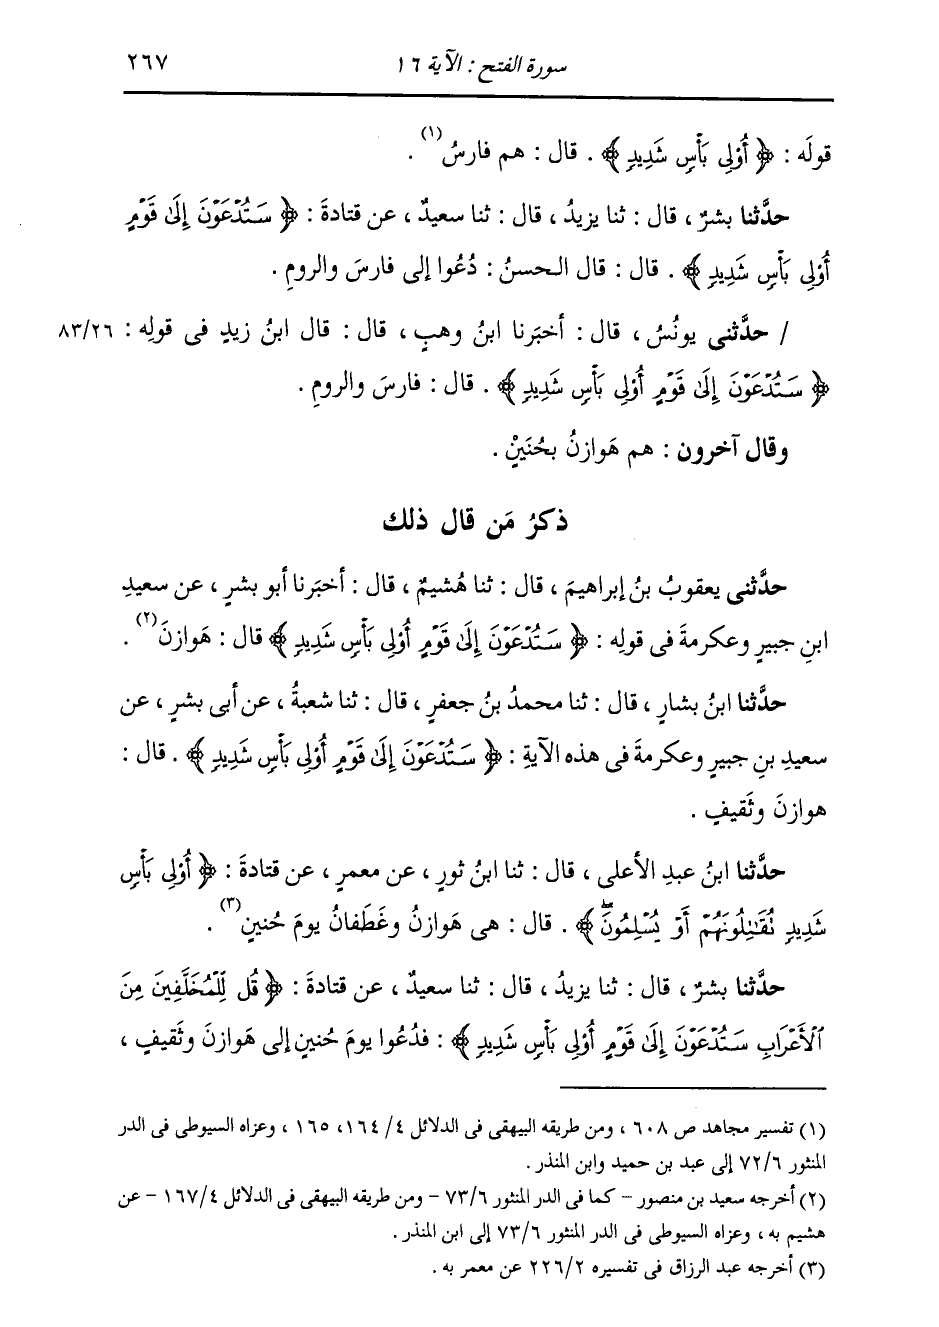 سورة الفتح : الآية ١٦ ٢٦٧
قولَه : ﴿ أُوْلِى بَأْسٍ شَدِيدٍ ﴾ . قال : هم فارسُ(١) .
حدَّثنا بشرٌ ، قال : ثنا يزيدُ ، قال : ثنا سعيدٌ ، عن قتادةَ : ﴿ سَتُدْعَوْنَ إِلَىٰ قَوْمٍ
أُوْلِى بَأْسٍ شَدِيدٍ ﴾ . قال : قال الحسنُ : دُعُوا إلى فارسَ والرومِ .
/ حدَّثنى يونُسُ ، قال : أخبَرنا ابنُ وهبٍ ، قال : قال ابنُ زيدٍ فى قولِه : ٨٣/٢٦
﴿ سَتُدْعَوْنَ إِلَىٰ قَوْمٍ أُوْلِى بَأْسٍ شَدِيدٍ ﴾ . قال : فارسَ والرومِ .
وقال آخرون : هم هَوازنُ بحُنَيْنٍ .
ذكرُ مَن قال ذلك
حدَّثنى يعقوبُ بنُ إبراهيمَ ، قال : ثنا هُشيمٌ ، قال : أخبَرنا أبو بشرٍ ، عن سعيدِ
ابنِ جبيرٍ وعكرمةَ فى قولِه : ﴿ سَتُدْعَوْنَ إِلَىٰ قَوْمٍ أُوْلِى بَأْسٍ شَدِيدٍ ﴾ قال : هَوازنَ(٢) .
حدَّثنا ابنُ بشارٍ ، قال : ثنا محمدُ بنُ جعفرٍ ، قال : ثنا شعبةُ ، عن أبى بشرٍ ، عن
سعيدِ بنِ جبيرٍ وعكرمةَ فى هذه الآيةِ : ﴿ سَتُدْعَوْنَ إِلَىٰ قَوْمٍ أُوْلِى بَأْسٍ شَدِيدٍ ﴾ . قال :
هوازنَ وثَقيفٍ .
حدَّثنا ابنُ عبدِ الأعلى ، قال : ثنا ابنُ ثورٍ ، عن معمرٍ ، عن قتادةَ : ﴿ أُوْلِى بَأْسٍ
شَدِيدٍ نُقَٰتِلُونَهُمْ أَوْ يُسْلِمُونَۖ ﴾ . قال : هى هَوازنُ وغَطَفانُ يومَ حُنينٍ(٣) .
حدَّثنا بشرٌ ، قال : ثنا يزيدُ ، قال : ثنا سعيدٌ ، عن قتادةَ : ﴿ قُل لِّلْمُخَلَّفِينَ مِنَ
ٱلْأَعْرَابِ سَتُدْعَوْنَ إِلَىٰ قَوْمٍ أُوْلِى بَأْسٍ شَدِيدٍ ﴾ : فدُعُوا يومَ حُنينٍ إلى هَوازنَ وثَقيفٍ ،
(١) تفسير مجاهد ص ٦٠٨ ، ومن طريقه البيهقى فى الدلائل ٤/ ١٦٤، ١٦٥ ، وعزاه السيوطى فى الدر
المنثور ٧٢/٦ إلى عبد بن حميد وابن المنذر .
(٢) أخرجه سعيد بن منصور – كما فى الدر المنثور ٧٣/٦ – ومن طريقه البيهقى فى الدلائل ١٦٧/٤ – عن
هشيم به ، وعزاه السيوطى فى الدر المنثور ٧٣/٦ إلى ابن المنذر .
(٣) أخرجه عبد الرزاق فى تفسيره ٢٢٦/٢ عن معمر به .